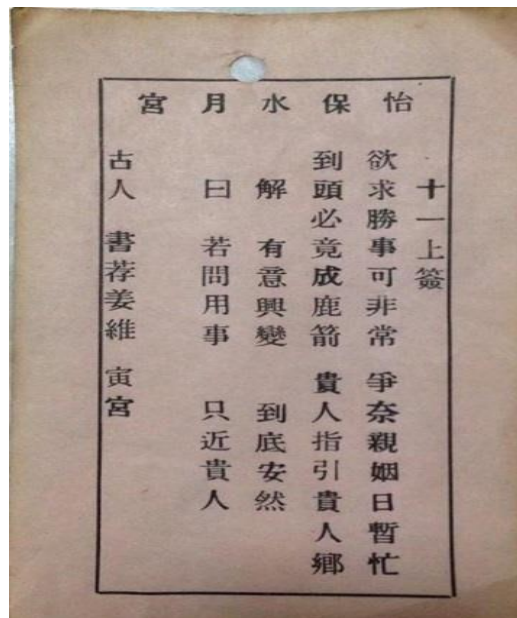 怡保水月宮
十一上簽
欲求勝事可非常 爭奈親姻日暫忙
到頭必竟成鹿箭 貴人指引貴人鄉
解 有意興變 到底安然
曰 若問用事 只近貴人
古人 書荐姜維 寅宮